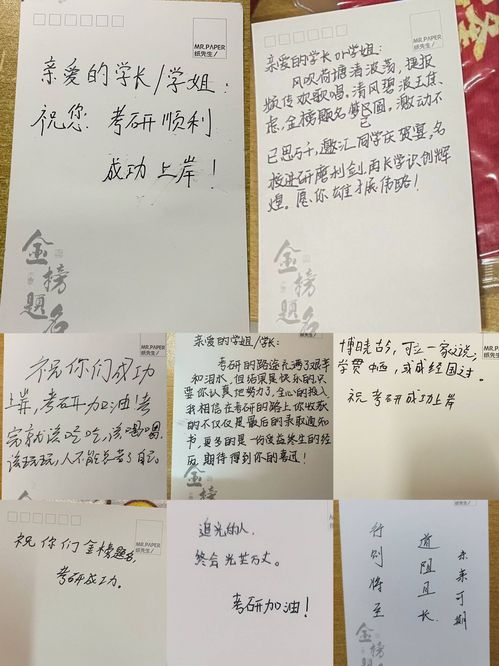 MR.PAPER
纸先生/
亲爱的学长/学姐：
祝您：考研顺利
成功上岸！
金榜题名
MR.PAPER
纸先生/
亲爱的学长or学姐：
风吹荷塘清波荡，捷报
频传欢歌唱，清风碧波王佳
志，金榜题名梦已圆，激动不
已思万千，邀汇同学庆贺宴，名
校进研磨利剑，再长学识创辉
煌。愿你雄才展伟略！
金榜题名
MR.PAPER
纸先生/
祝你们成功
上岸，考研加油！考
完就该吃吃，该喝喝，
该玩玩，人不能亏着了自己。
亲爱的学姐/学长：
考研的路途充满了艰辛
和泪水，但结果是快乐的，只
要你认真地努力了，全心的投入
我相信在考研的路上你收获
的不仅仅是最后的录取通知
书，更多的是一份受益终生的经
历，期待得到你的喜讯！
MR.PAPER
纸先生/
博晓古今，可立一家之说，
学贯中西，或成经国之才。
祝 考研成功上岸
MR.PAPER
纸先生/
祝你们金榜题名，
考研成功。
追光的人，
终会光芒万丈。
考研加油！
未来可期
道阻且长
行则将至
金榜